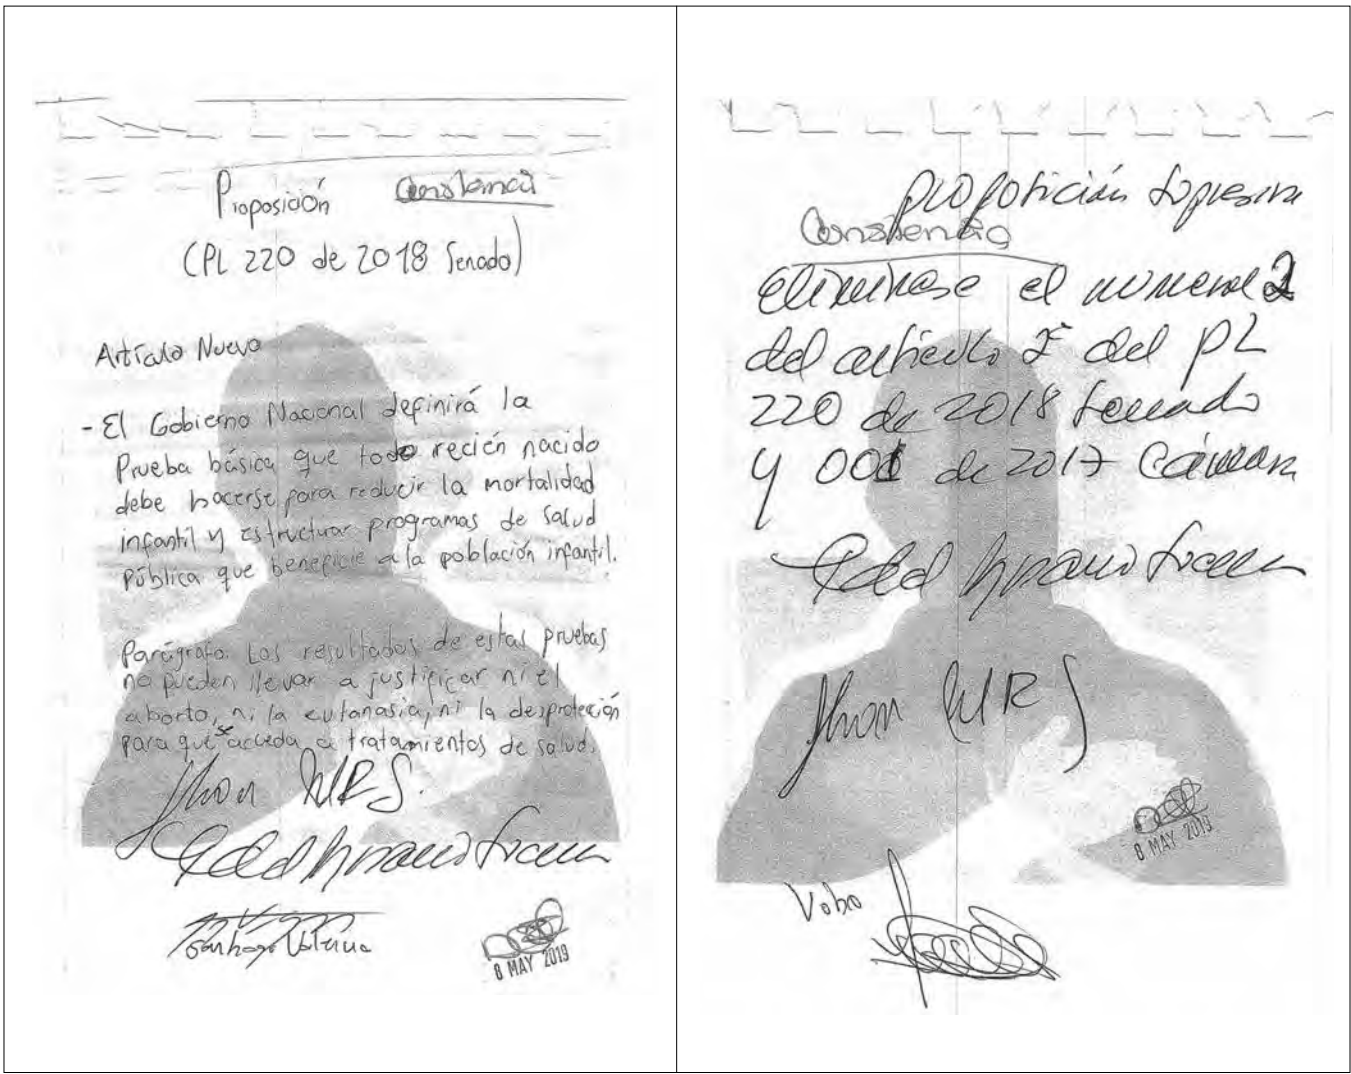 Proposición Constancia
(PL 220 de 2018 Senado)
Artículo Nuevo
- El Gobierno Nacional definirá la
Prueba básica que todo recién nacido
debe hacerse para reducir la mortalidad
infantil y estructurar programas de salud
pública que beneficie a la población infantil.
Parágrafo: Los resultados de estas pruebas
no pueden llevar a justificar ni el
aborto, ni la eutanasia, ni la desprotección
para que se acceda a tratamientos de salud.
Jhon
Santiago Valencia
8 MAY 2019
proposición
Constancia
Eliminase el numeral 2
del artículo 2º del PL
220 de 2018 Senado
y 001 de 2017 Cámara
Jhon
Vobo
8 MAY 2019